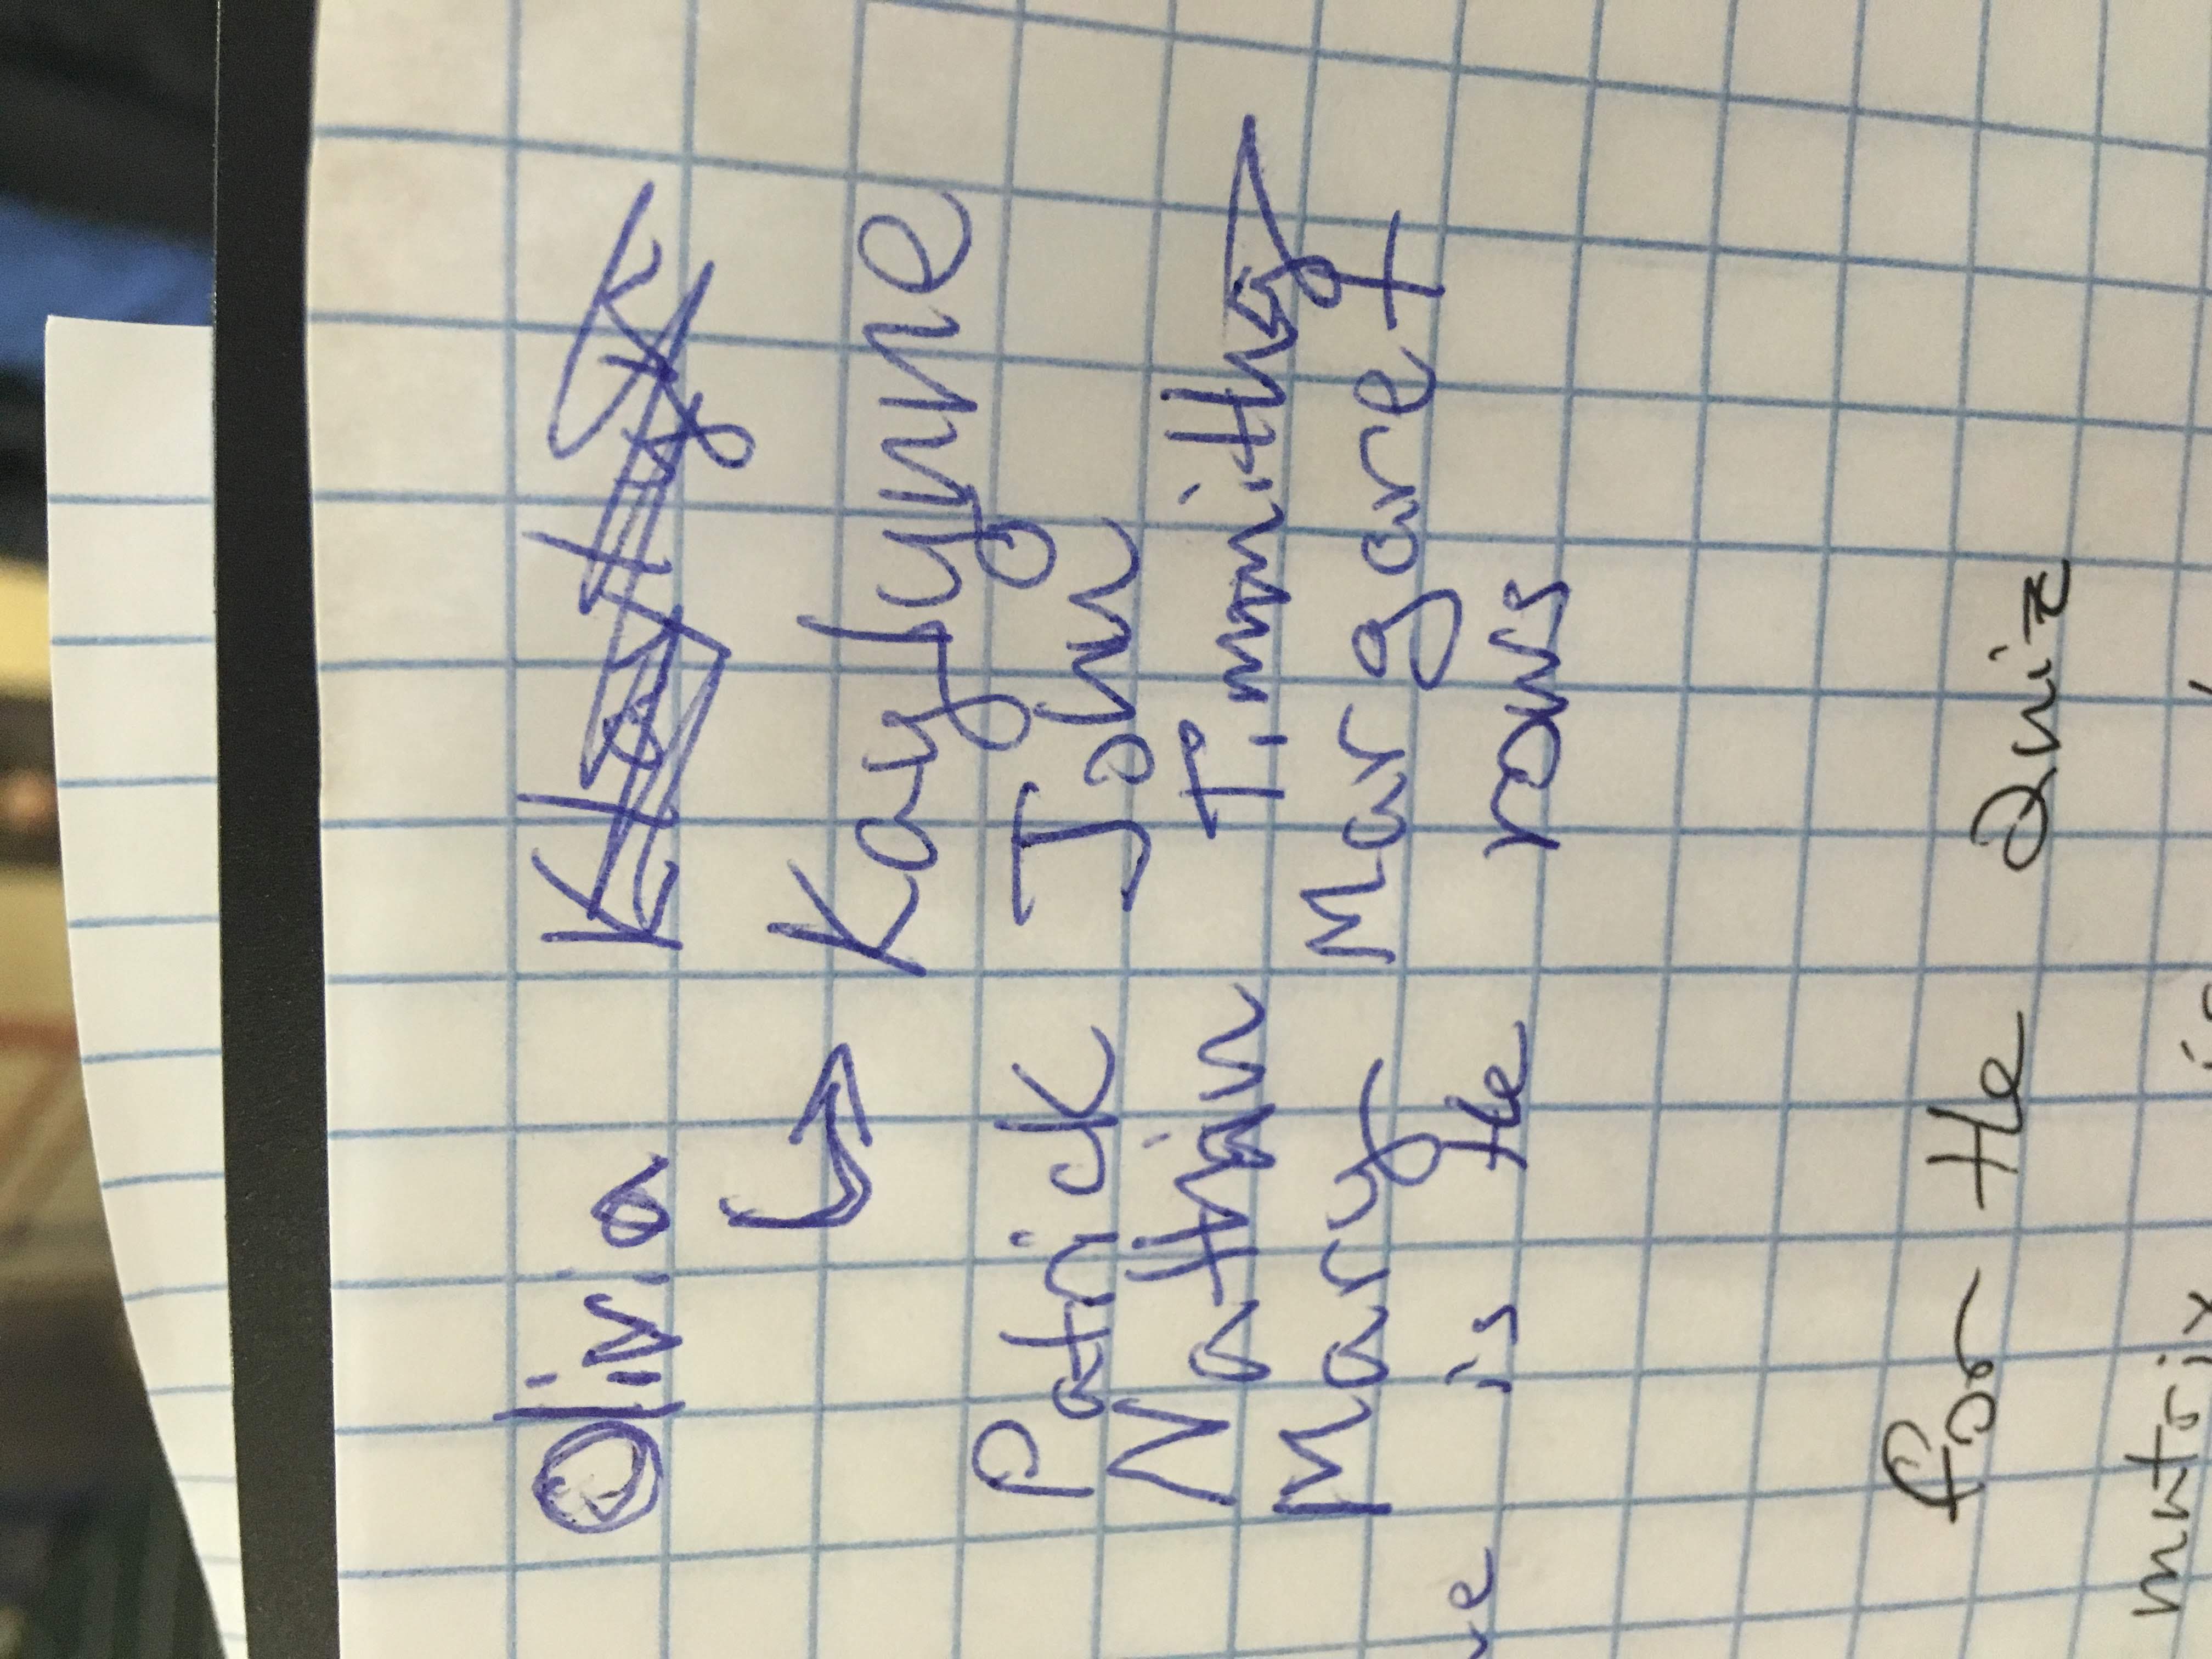 Olivia
Kaylynne
Patrick John
Nathan Timmithy
Mary Margaret
is the rows
for the Quiz
matrix is